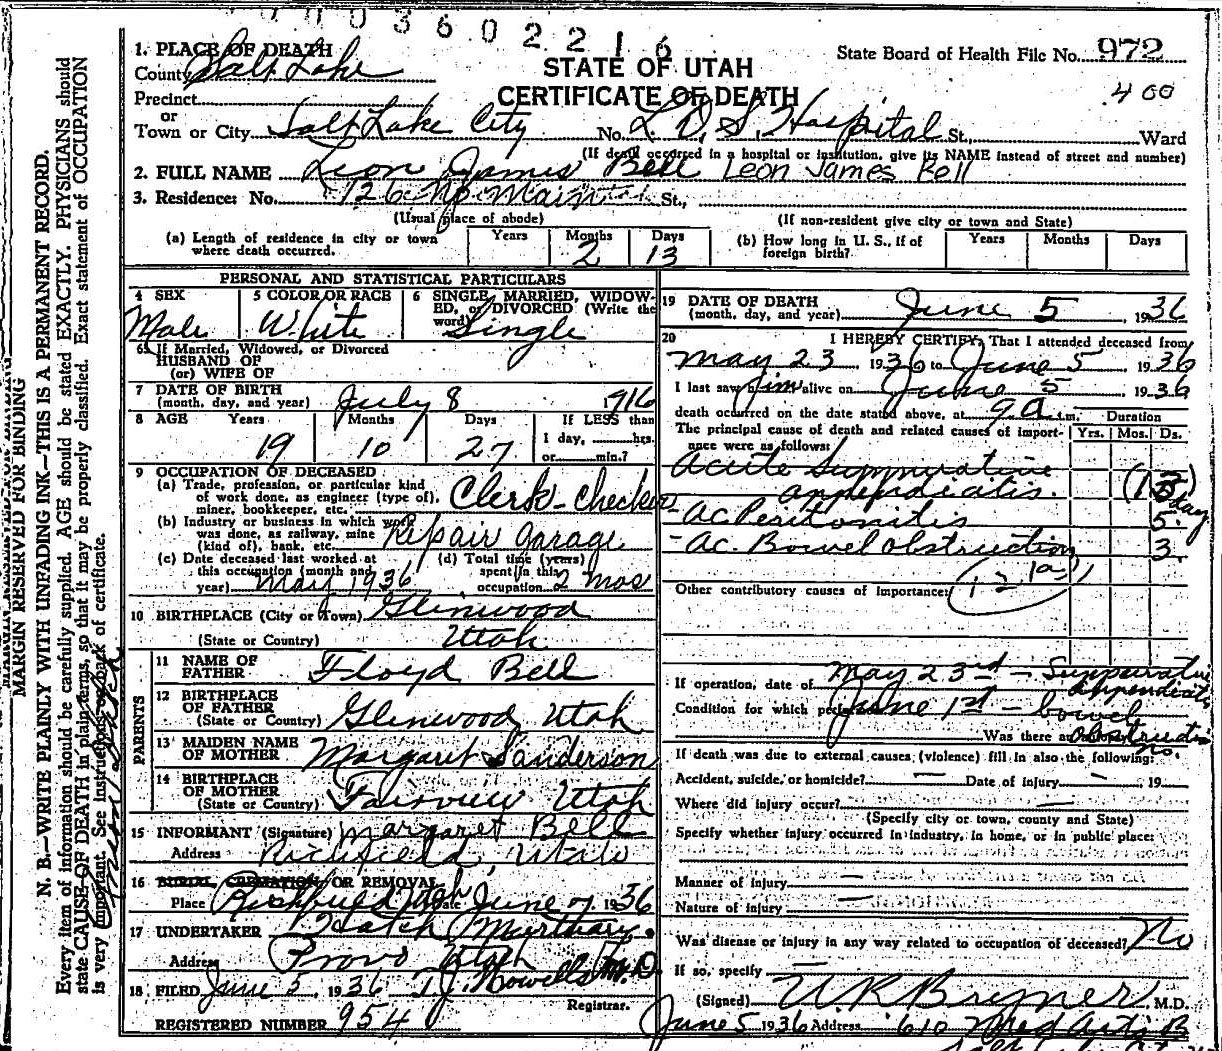 00036022 1 6
1. PLACE OF DEATH
County Salt Lake
STATE OF UTAH
CERTIFICATE OF DEATH
State Board of Health File No. 972
400
Precinct
or
Town or City Salt Lake City No. L. D. S. Hospital St., Ward
(If death occurred in a hospital or institution, give its NAME instead of street and number)
2. FULL NAME Leon James Bell Leon James Bell
3. Residence: No. 126 No. Main St.,
(Usual place of abode) (If non-resident give city or town and State)
(a) Length of residence in city or town where death occurred. Years Months 2 Days 13
(b) How long in U. S., if of foreign birth? Years Months Days
PERSONAL AND STATISTICAL PARTICULARS
4 SEX Male
5 COLOR OR RACE White
6 SINGLE, MARRIED, WIDOWED, or DIVORCED (Write the word) Single
6a If Married, Widowed, or Divorced
HUSBAND OF
(or) WIFE OF
7 DATE OF BIRTH
(month, day, and year) July 8 1916
8 AGE Years 19 Months 10 Days 27 If LESS than
1 day, hrs.
or min.?
9 OCCUPATION OF DECEASED
(a) Trade, profession, or particular kind
of work done, as engineer (type of),
miner, bookkeeper, etc. Clerk - checker
(b) Industry or business in which work
was done, as railway, mine
(kind of), bank, etc. Repair Garage
(c) Date deceased last worked at
this occupation (month and
year) May 1936
(d) Total time (years)
spent in this
occupation 2 mos
10 BIRTHPLACE (City or Town) Glenwood
(State or Country) Utah
PARENTS
11 NAME OF
FATHER Floyd Bell
12 BIRTHPLACE
OF FATHER
(State or Country) Glenwood, Utah
13 MAIDEN NAME
OF MOTHER Margaret Sanderson
14 BIRTHPLACE
OF MOTHER
(State or Country) Fairview Utah
15 INFORMANT (Signature) Margaret Bell
Address Richfield, Utah
16 BURIAL, CREMATION, OR REMOVAL
Place Richfield Utah Date June 7 1936
17 UNDERTAKER Hatch Mortuary
Address Provo Utah
18 FILED June 5, 1936 T. J. Howells M.D.
Registrar.
REGISTERED NUMBER 954
19 DATE OF DEATH
(month, day, and year) June 5, 1936
20 I HEREBY CERTIFY, That I attended deceased from
May 23 1936 to June 5, 1936
I last saw him alive on June 5, 1936
death occurred on the date stated above, at 9 a. m. Duration
The principal cause of death and related causes of importance were as follows: Yrs. Mos. Ds.
Acute Suppurative
appendicitis. (13) day
- Ac. Peritonitis 5.
- Ac. Bowel obstruction 3.
Other contributory causes of importance: (121a)
If operation, date of May 23rd - Suppurative appendicitis
Condition for which performed June 1st - bowel obstruction
Was there an autopsy? no
If death was due to external causes (violence) fill in also the following:
Accident, suicide, or homicide? — Date of injury — 19
Where did injury occur? —
(Specify city or town, county and State)
Specify whether injury occurred in industry, in home, or in public place:
Manner of injury —
Nature of injury —
Was disease or injury in any way related to occupation of deceased? No
If so, specify —
(Signed) W R Brymer M.D.
June 5 1936 Address 610 Med Arts B
MARGIN RESERVED FOR BINDING
N. B.—WRITE PLAINLY WITH UNFADING INK—THIS IS A PERMANENT RECORD.
Every item of information should be carefully supplied. AGE should be stated EXACTLY. PHYSICIANS should
state CAUSE OF DEATH in plain terms, so that it may be properly classified. Exact statement of OCCUPATION
is very important. See instructions on back of certificate.